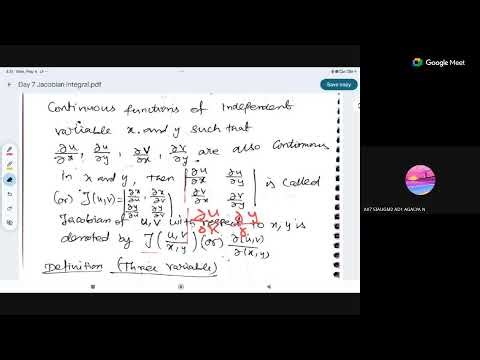 Google Meet
Day 7 Jacobian Integral.pdf
Save copy
Continuous functions of Independent
variable x, and y such that
∂u/∂x, ∂u/∂y, ∂v/∂x, ∂v/∂y are also continuous
In x and y, then |∂u/∂x ∂u/∂y ∂v/∂x ∂v/∂y| is called
(or) J(u,v) =
Jacobian of u, v with respect to x, y is
∂u/∂x
denoted by J(u,v/x,y) (or) ∂(u,v)/∂(x,y)
Definition (Three variable)